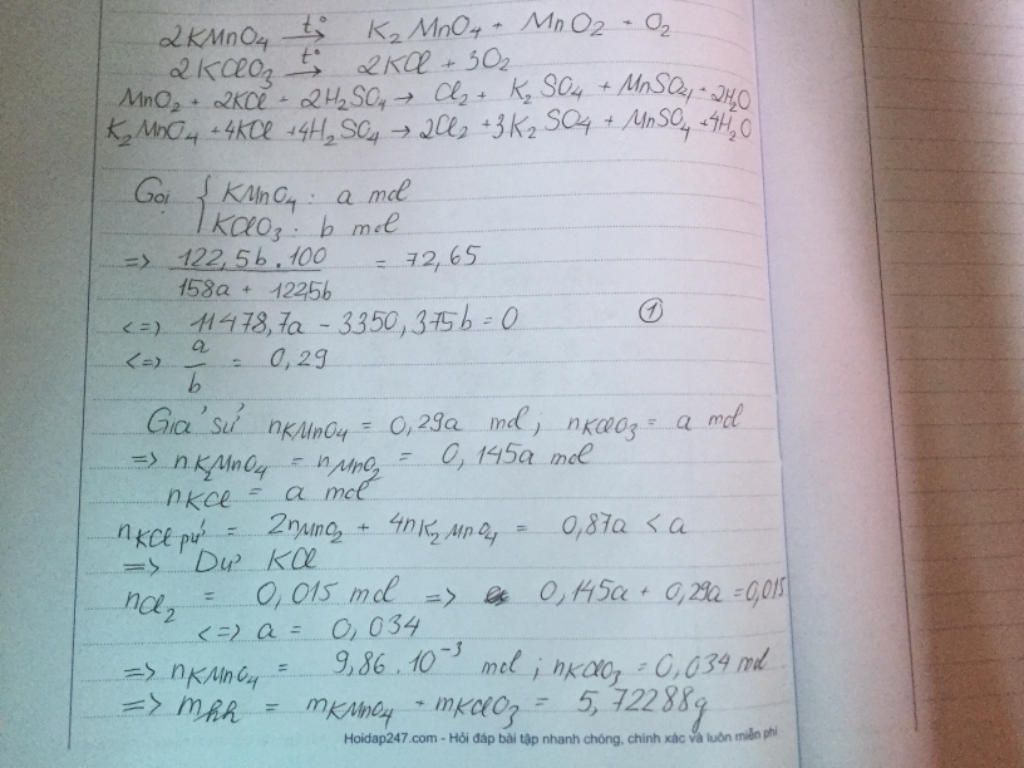 2KMnO4 t°→ K2MnO4 + MnO2 + O2
2KClO3 t°→ 2KCl + 3O2
MnO2 + 2KCl + 2H2SO4 → Cl2 + K2SO4 + MnSO4 + 2H2O
K2MnO4 + 4KCl + 4H2SO4 → 2Cl2 + 3K2SO4 + MnSO4 + 4H2O
Gọi { KMnO4 : a mol
KClO3 : b mol
=> 122,5b.100 / 158a + 122,5b = 72,65
<=> 11478,7a - 3350,375b = 0 ①
<=> a/b = 0,29
Giả sử nKMnO4 = 0,29a mol ; nKClO3 = a mol
=> nK2MnO4 = nMnO2 = 0,145a mol
nKCl = a mol
nKCl pứ = 2nMnO2 + 4nK2MnO4 = 0,87a < a
=> Dư KCl
nCl2 = 0,015 mol => 0,145a + 0,29a = 0,015
<=> a = 0,034
=> nKMnO4 = 9,86.10^-3 mol ; nKClO3 = 0,034 mol
=> mhh = mKMnO4 + mKClO3 = 5,72288g
Hoidap247.com - Hỏi đáp bài tập nhanh chóng, chính xác và luôn miễn phí